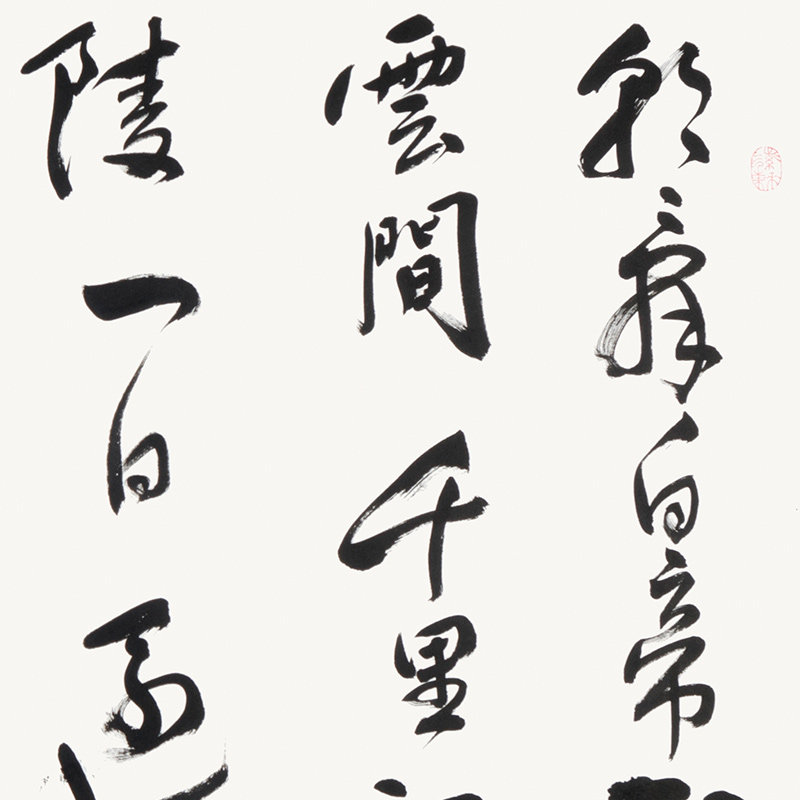 朝辭白帝
雲間千里
陵一日還